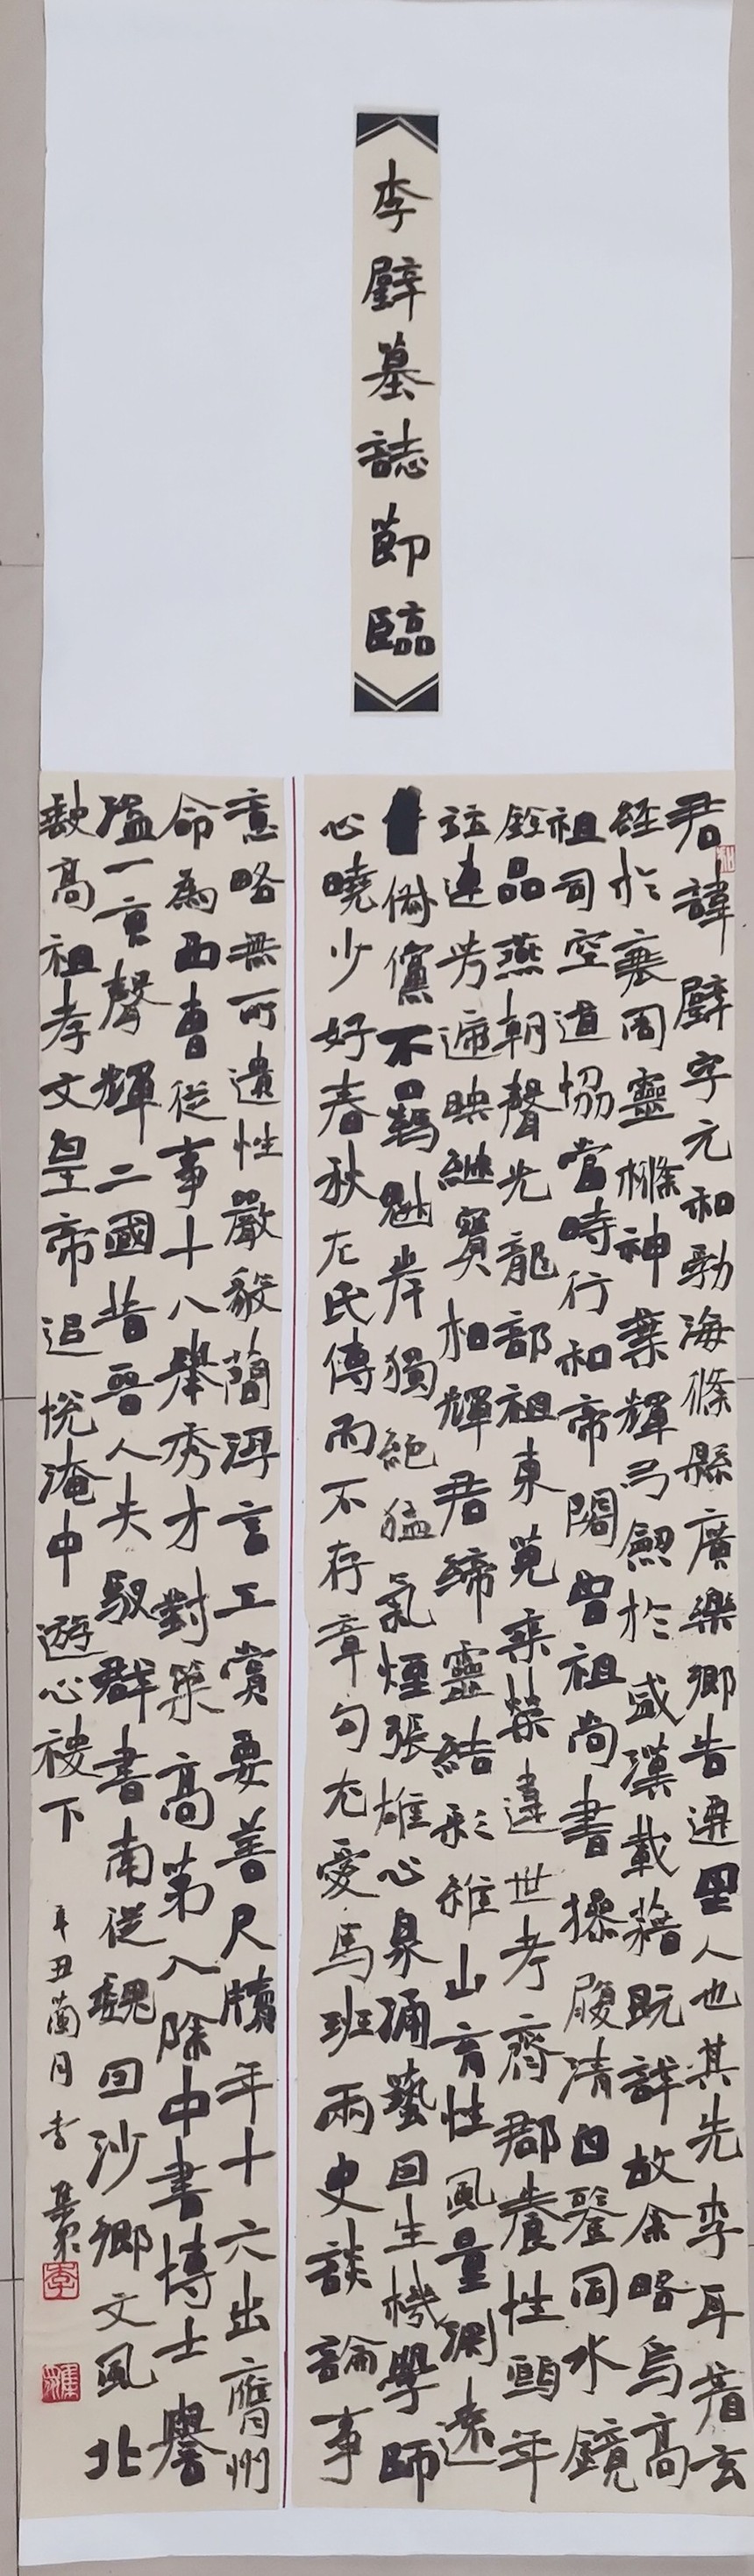 李璧墓誌節臨
君諱璧字元和勃海條縣廣樂鄉吉遷里人也其先李耳著玄
經於衰周靈櫾神葉輝弓劒於盛漢載藉既詳故余略焉高
祖司空道協當時行和帝閣曾祖尚書操履清白鑒同水鏡
銓品燕朝聲光龍部祖東莞乘榮違世考齊郡養性頤年
竝連芳遞映繼寶相輝君締靈結彩維山育性風量淵遠
俶儻不羈魁岸獨絕猛氣煙張雄心泉涌藝因生機學師
心曉少好春秋左氏傳而不存章句尤愛馬班兩史談論事
意略無所遺性嚴毅蕳得言工賞要善尺牘年十六出膺州
命為西曹從事十八舉秀才對策高第入除中書博士譽
溢一京聲輝二國昔晉人失馭群書南徙魏因沙鄉文風北
缺高祖孝文皇帝追悅淹中遊心稷下
辛丑蘭月李